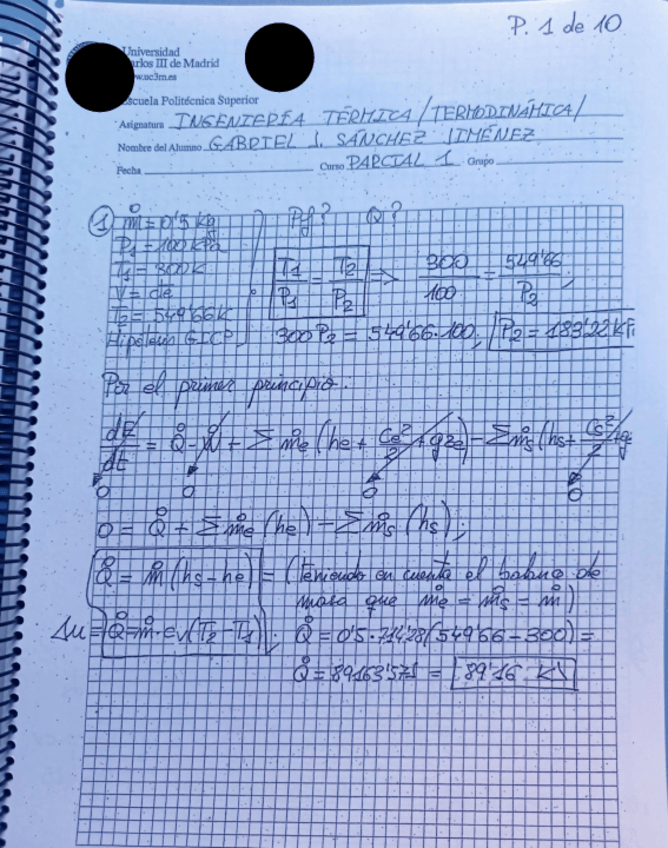 P. 1 de 10
Universidad
arlos III de Madrid
w.uc3m.es
scuela Politécnica Superior
Asignatura INGENIERÍA TÉRMICA/TERMODINÁMICA/
Nombre del Alumno GABRIEL J. SÁNCHEZ JIMÉNEZ
Fecha Curso PARCIAL 1 Grupo
① ṁ = 0'5 kg/s Pf? Q?
P₁ = 100 kPa
T₁ = 300 K
V = cte
T₂ = 549'66 K
Hipótesis G.I.C.P
T₁/P₁ = T₂/P₂ => 300/100 = 549'66/P₂;
300 P₂ = 549'66·100; P₂ = 183'22 KP
Por el primer principio.
dE/dt = Q̇ - Ẇ + Σ ṁe (he + Ce²/2 + gze) - Σ ṁs (hs + Cs²/2 + g
0 0 0 0
0 = Q̇ + Σ ṁe (he) - Σ ṁs (hs);
Q̇ = ṁ (hs - he) = (Teniendo en cuenta el balance de
masa que ṁe = ṁs = ṁ)
Δu = Q̇ = ṁ·cv(T₂ - T₁); Q̇ = 0'5·714'28(549'66 - 300) =
Q̇ = 89163'571 = 89'16 KW